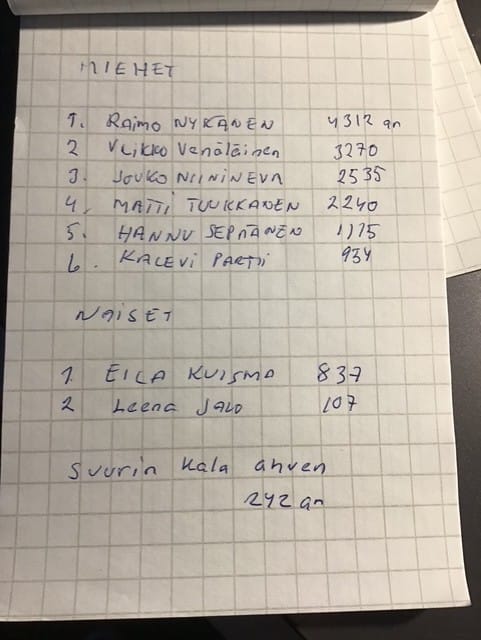 MIEHET
1. Raimo NYKÄNEN 4312 gn
2 Veikko Venäläinen 3270
3. JOUKO NIINI NEVA 2535
4. MATTI TUUKKANEN 2240
5. HANNU SEPPÄNEN 1175
6. KALEVI PARTII 954
NAISET
1. EILA KUISMA 837
2 Leena JALO 107
Suurin kala ahven
242 gn